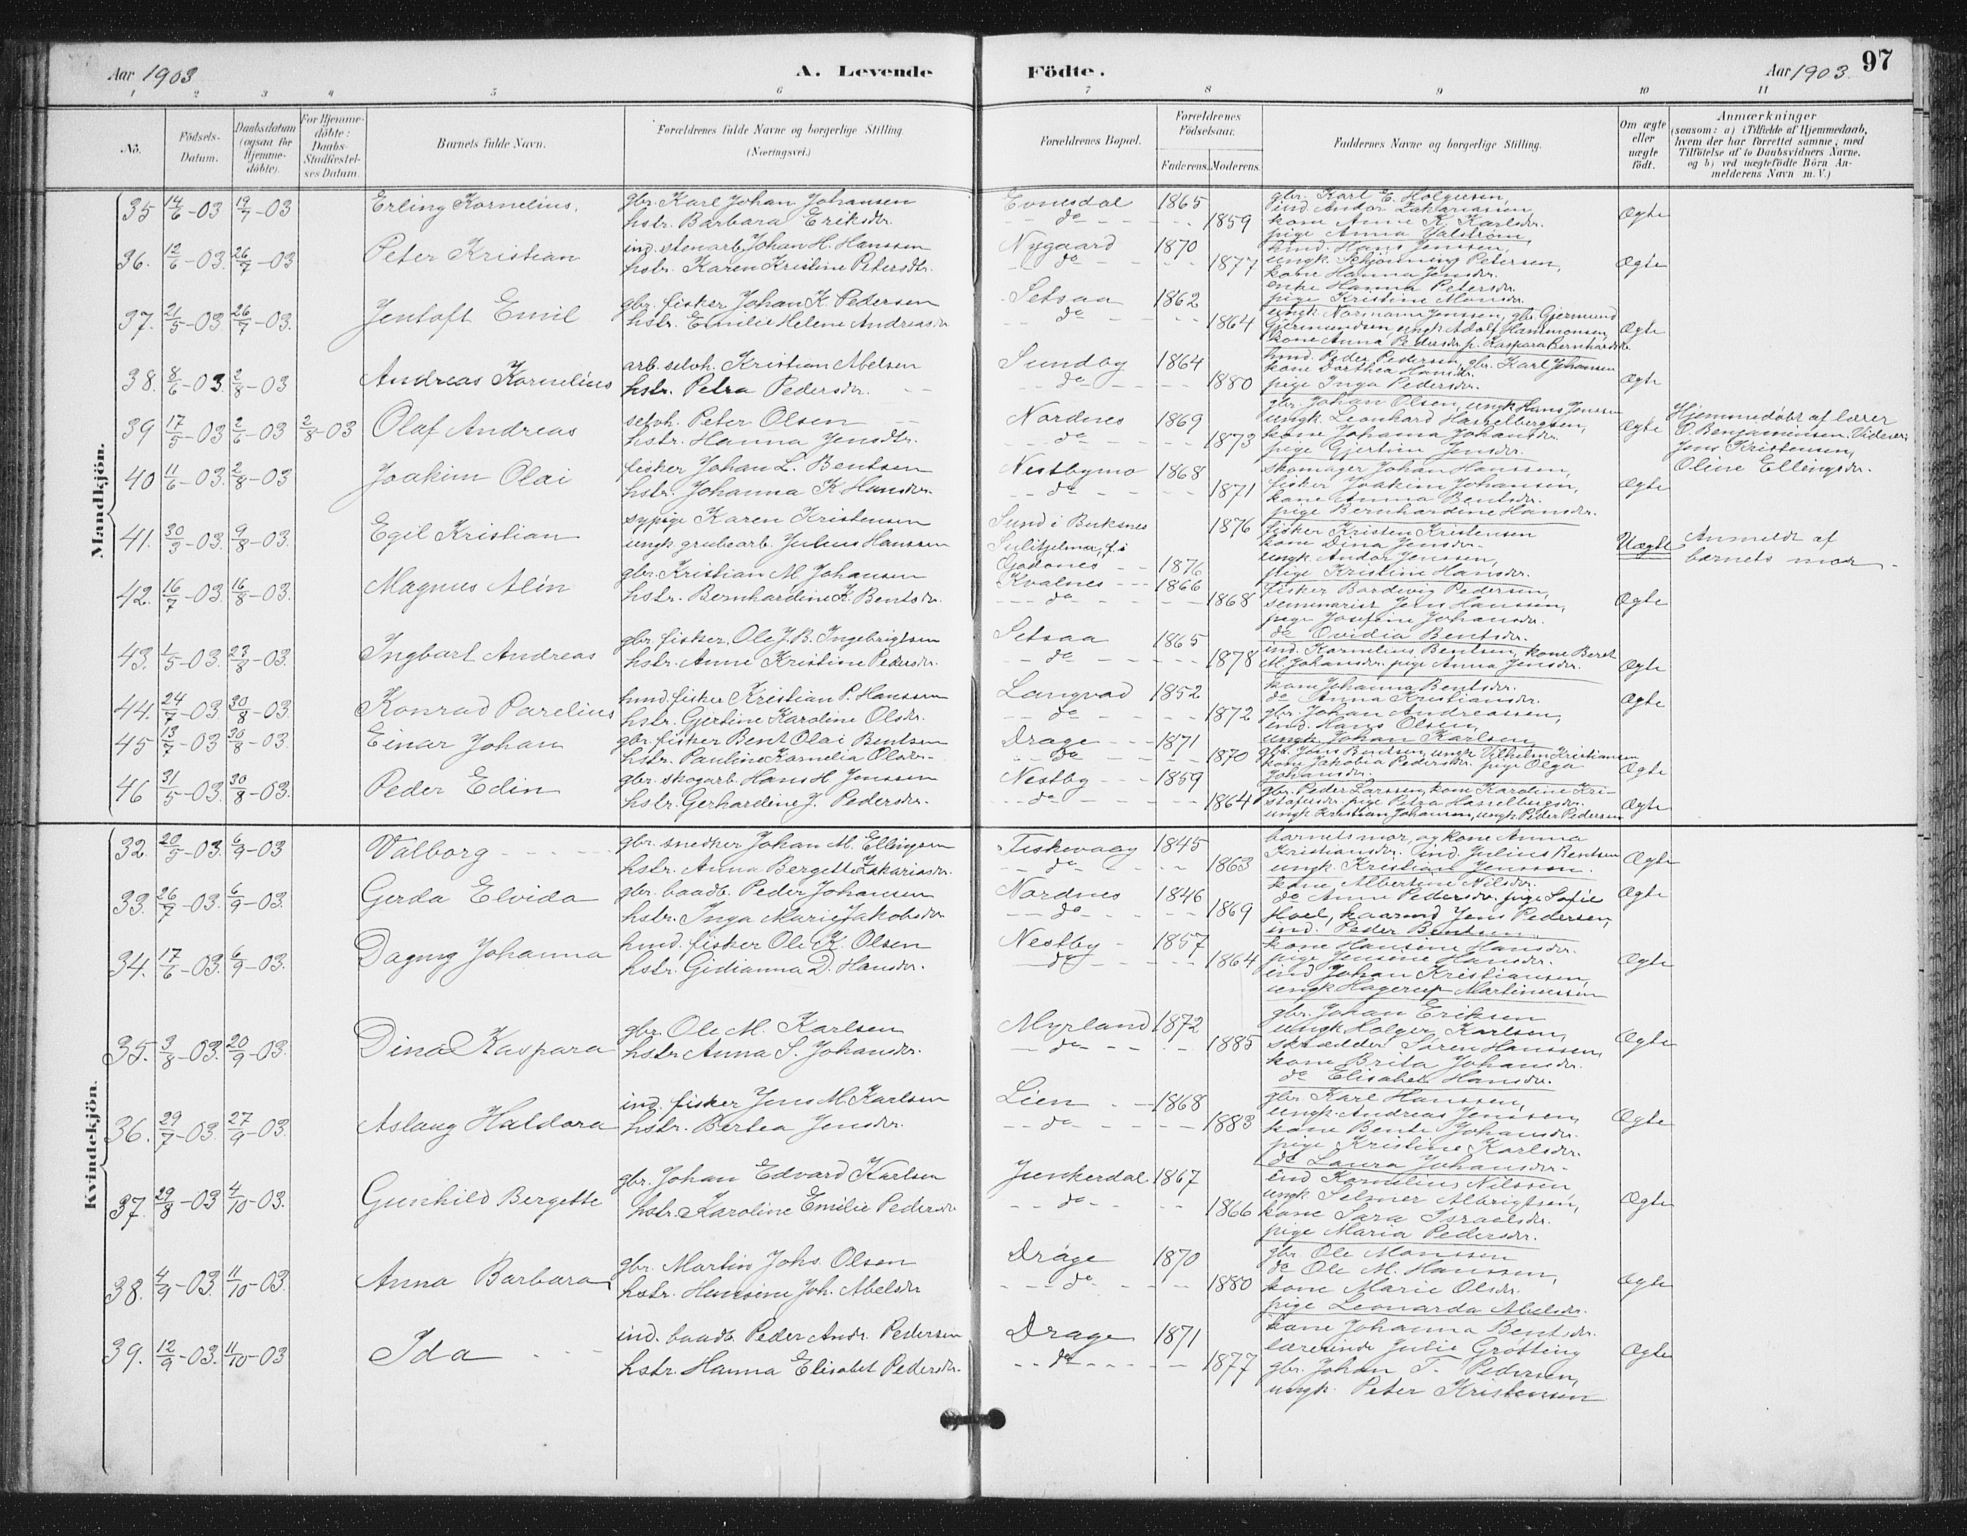 Aar 1903
A. Levende
Födte.
Aar 1903.
97
1 2 3 4 5 6 7 8 9 10 11
No.
Födsels-
Datum.
Daabsdatum
(ogsaa for
Hjemme-
döbte).
For Hjemme-
döbte:
Daabs-
Stadfæstel-
ses Datum.
Barnets fulde Navn.
Forældrenes fulde Navne og borgerlige Stilling
(Næringsvei.)
Forældrenes Bopæl.
Forældrenes
Födselsaar.
Faderens. Moderens.
Faddernes Navne og borgerlige Stilling.
Om ægte
eller
uægte
födt.
Anmærkninger
(saasom: a) i Tilfælde af Hjemmedaab,
hvem der har forrettet samme; med
Tilföielse af to Daabsvidners Navne,
og b) ved uægtefödte Börn An-
melderens Navn m. V.)
Mandkjön.
35 14/6-03 19/7-03 Erling Kornelius. gbr. Karl Johan Johansen Evnesdal 1865 gbr. Karl E. Holgersen,
hstr. Barbara Eriksdr. do 1859 ind. Andor Zakariassen
kone Anne K. Karlsdr. Ægte
pige Anna Valstrøm
36. 12/6-03. 26/7-03 Peter Kristian ind. stenarb. Johan H. Hanssen Nygaard 1870 hmd. Hans Jenssen,
hstr. Karen Kristine Petersdtr. do 1877 ungk. Schjønning Petersen, Ægte
kone Hanna Jensdr.
enke Hanna Petersdr.
37. 21/5-03 26/7-03. Jentoft Emil gbr. fisker Johan K. Pedersen Setsaa 1862 pige Kristine Monsdr.
hstr. Emilie Helene Andreasdr do 1864 ungk Normann Jenssen, gbr. Gjermund
Gjermundsen ungk Adolf Hammonsen, Ægte
kone Anna Pedersdr p. Kaspara Bernhardsdr
38. 8/6-03 2/8-03 Andreas Kornelius arb. selvh. Kristian Abelsen Sundby 1864 hmd. Peder Pedersen, gbr. Karl Johansen
hstr. Petra Pedersdr. do 1880 kone Dorthea Hansdr. Ægte
pige Inga Pedersdr.
39 17/5-03 2/6-03 2/8-03 Olaf Andreas selvh. Peter Olsen Nordnes 1869 gbr. Johan Olsen, ungk Hans Jenssen
hstr. Hanna Jensdtr. do 1873 ungk. Leonhard Hasselbergsen, Ægte Hjemmedøbt af lærer
kone Johanna Johansdr. O. Benjaminsen. Vidner;
pige Gjertine Jensdr. Jens Kristensen,
Oline Ellingsdr.
40 11/6-03. 2/8-03 Joakim Olai fisker Johan L. Bentsen Nestbymo 1868 skomager Johan Hanssen,
hstr. Johanna K Hansdr. do 1871 fisker Joakim Johansen, Ægte
kone Anna Bentsdr.
pige Bernhardine Hansdr.
41. 30/3-03. 9/8-03. Egil Kristian sypige Karen Kristensen Sund i Buksnes 1876 fisker Kristen Kristensen
ungk. grubearb. Julius Hanssen Sulitjelma, f. i kone Dina Jensdr. Uægte Anmeldt af
Godønes 1876 ungk. Andor Jenssen, barnets mor.
pige Kristine Hansdr.
42. 16/7-03 16/8-03. Magnus Alén gbr. Kristian M. Johansen Kvalnes 1866 fisker Bardevig Pedersen,
hstr. Bernhardine K. Bentsdr. do 1868 seminarist Jens Hanssen, Ægte
pige Josefine Johansdr.
do Ovidia Bentsdr.
43. 1/5-03. 23/8-03. Ingbart Andreas gbr. fisker. Ole J. B. Ingebrigtsen Setsaa 1865 ind. Kornelius Bentsen, kone Beret
hstr. Anne Kristine Pedersdr. do 1878 M. Johansdr. pige Anna Jensdr. Ægte
44. 24/7-03 30/8-03. Konrad Parelius hmd. fisker Kristian P. Hanssen Langvad 1852 kone Johanna Bentsdr.
hstr. Gjertine Karoline Olsdr. do 1872 do Anna Kristiansdr. Ægte
gbr. Johan Andreassen,
ind. Hans Olsen,
45 13/7-03 30/8-03. Einar Johan gbr. fisker Bent Olai Bentsen Drage 1871 ungk. Johan Karlsen
hstr. Pauline Kornelia Olsdr. do 1870 gbr. Jens Bentsen, ungk Vilhelm Kristiansen
kone Jakobia Pedersdr. pige Olga Ægte
Johansdr.
46 31/5-03. 30/8-03. Peder Edin gbr. skogarb. Hans H. Jenssen Nestby 1859 gbr. Peder Larssen, kone Karoline Kri-
hstr. Gerhardine J. Pedersdr. do 1864 stofersdr. pige Petra Hasselbergsdr. Ægte
ungk Kristian Johansen, ungk. Peder Pedersen
Kvindekjön.
32. 20/5-03 6/9-03 Valborg gbr. snedker Johan M. Ellingsen Fiskevaag 1845 barnets mor, og kone Anna
hstr. Anna Bergette Zakariasdr. do 1863 Kristiansdr. ind. Julius Bentsen Ægte
ungk. Kristian Jenssen.
33. 26/7-03. 6/9-03. Gerda Elvida gbr. baadb. Peder Johansen Nordnes 1846 kone Albertine Nilsdr.
hstr. Inga Marie Jakobsdr do 1869 do Anne Pedersdr. pige Sofie Ægte
Hoel, kaarmd Jens Pedersen,
ind. Peder Bentsen.
34. 17/6-03. 6/9-03. Dagny Johanna hmd. fisker Ole K. Olsen Nestby 1857 kone Hansine Hansdr.
hstr. Gidianna D. Hansdr. do 1864 pige Jensine Hansdr. Ægte
ind Johan Kristiansen,
ungk Hagerup Martinussen
35. 3/8-03. 20/9-03. Dina Kaspara gbr. Ole M. Karlsen Myrland 1872 gbr. Johan Eriksen
hstr Anna S. Johansdr. do 1885 ungk Holger Karlsen, Ægte
skrædder Søren Hanssen,
kone Brita Johansdr.
do Elisabet Hansdr.
36. 29/7-03. 27/9-03. Aslaug Haldora ind. fisker Jens M. Karlsen Lien 1868 gbr. Karl Hanssen,
hstr. Bertea Jensdr. do 1883 ungk. Andreas Jenssen, Ægte
kone Bente Johansdr.
pige Kristine Karlsdr.
do Laura Johansdr.
37. 29/8-03 4/10-03. Gunhild Bergette gbr. Johan Edvard Karlsen Junkerdal 1867 ind Kornelius Nilssen
hstr. Karoline Emilie Pedersdr do 1866 ungk. Selmer Albrigtsen, Ægte
kone Sara Israelsdr.
pige Maria Pedersdr.
38. 4/9-03. 11/10-03. Anna Barbara gbr. Martin Johs. Olsen Drage 1870 gbr. Ole Monssen
hstr. Hansine Joh. Abelsdr do 1880 do Ole M. Hanssen, Ægte
kone Marie Olsdr.
pige Leonarda Abelsdr.
39. 12/9-03. 11/10-03 Ida ind. baadb. Peder Andr. Pedersen Drage 1871 kone Johanna Bentsdr.
hstr. Hanna Elisabet Pedersdr. do 1877 lærerinde Julie Grøtting Ægte
gbr. Johan T. Pedersen,
ungk. Peter Kristensen